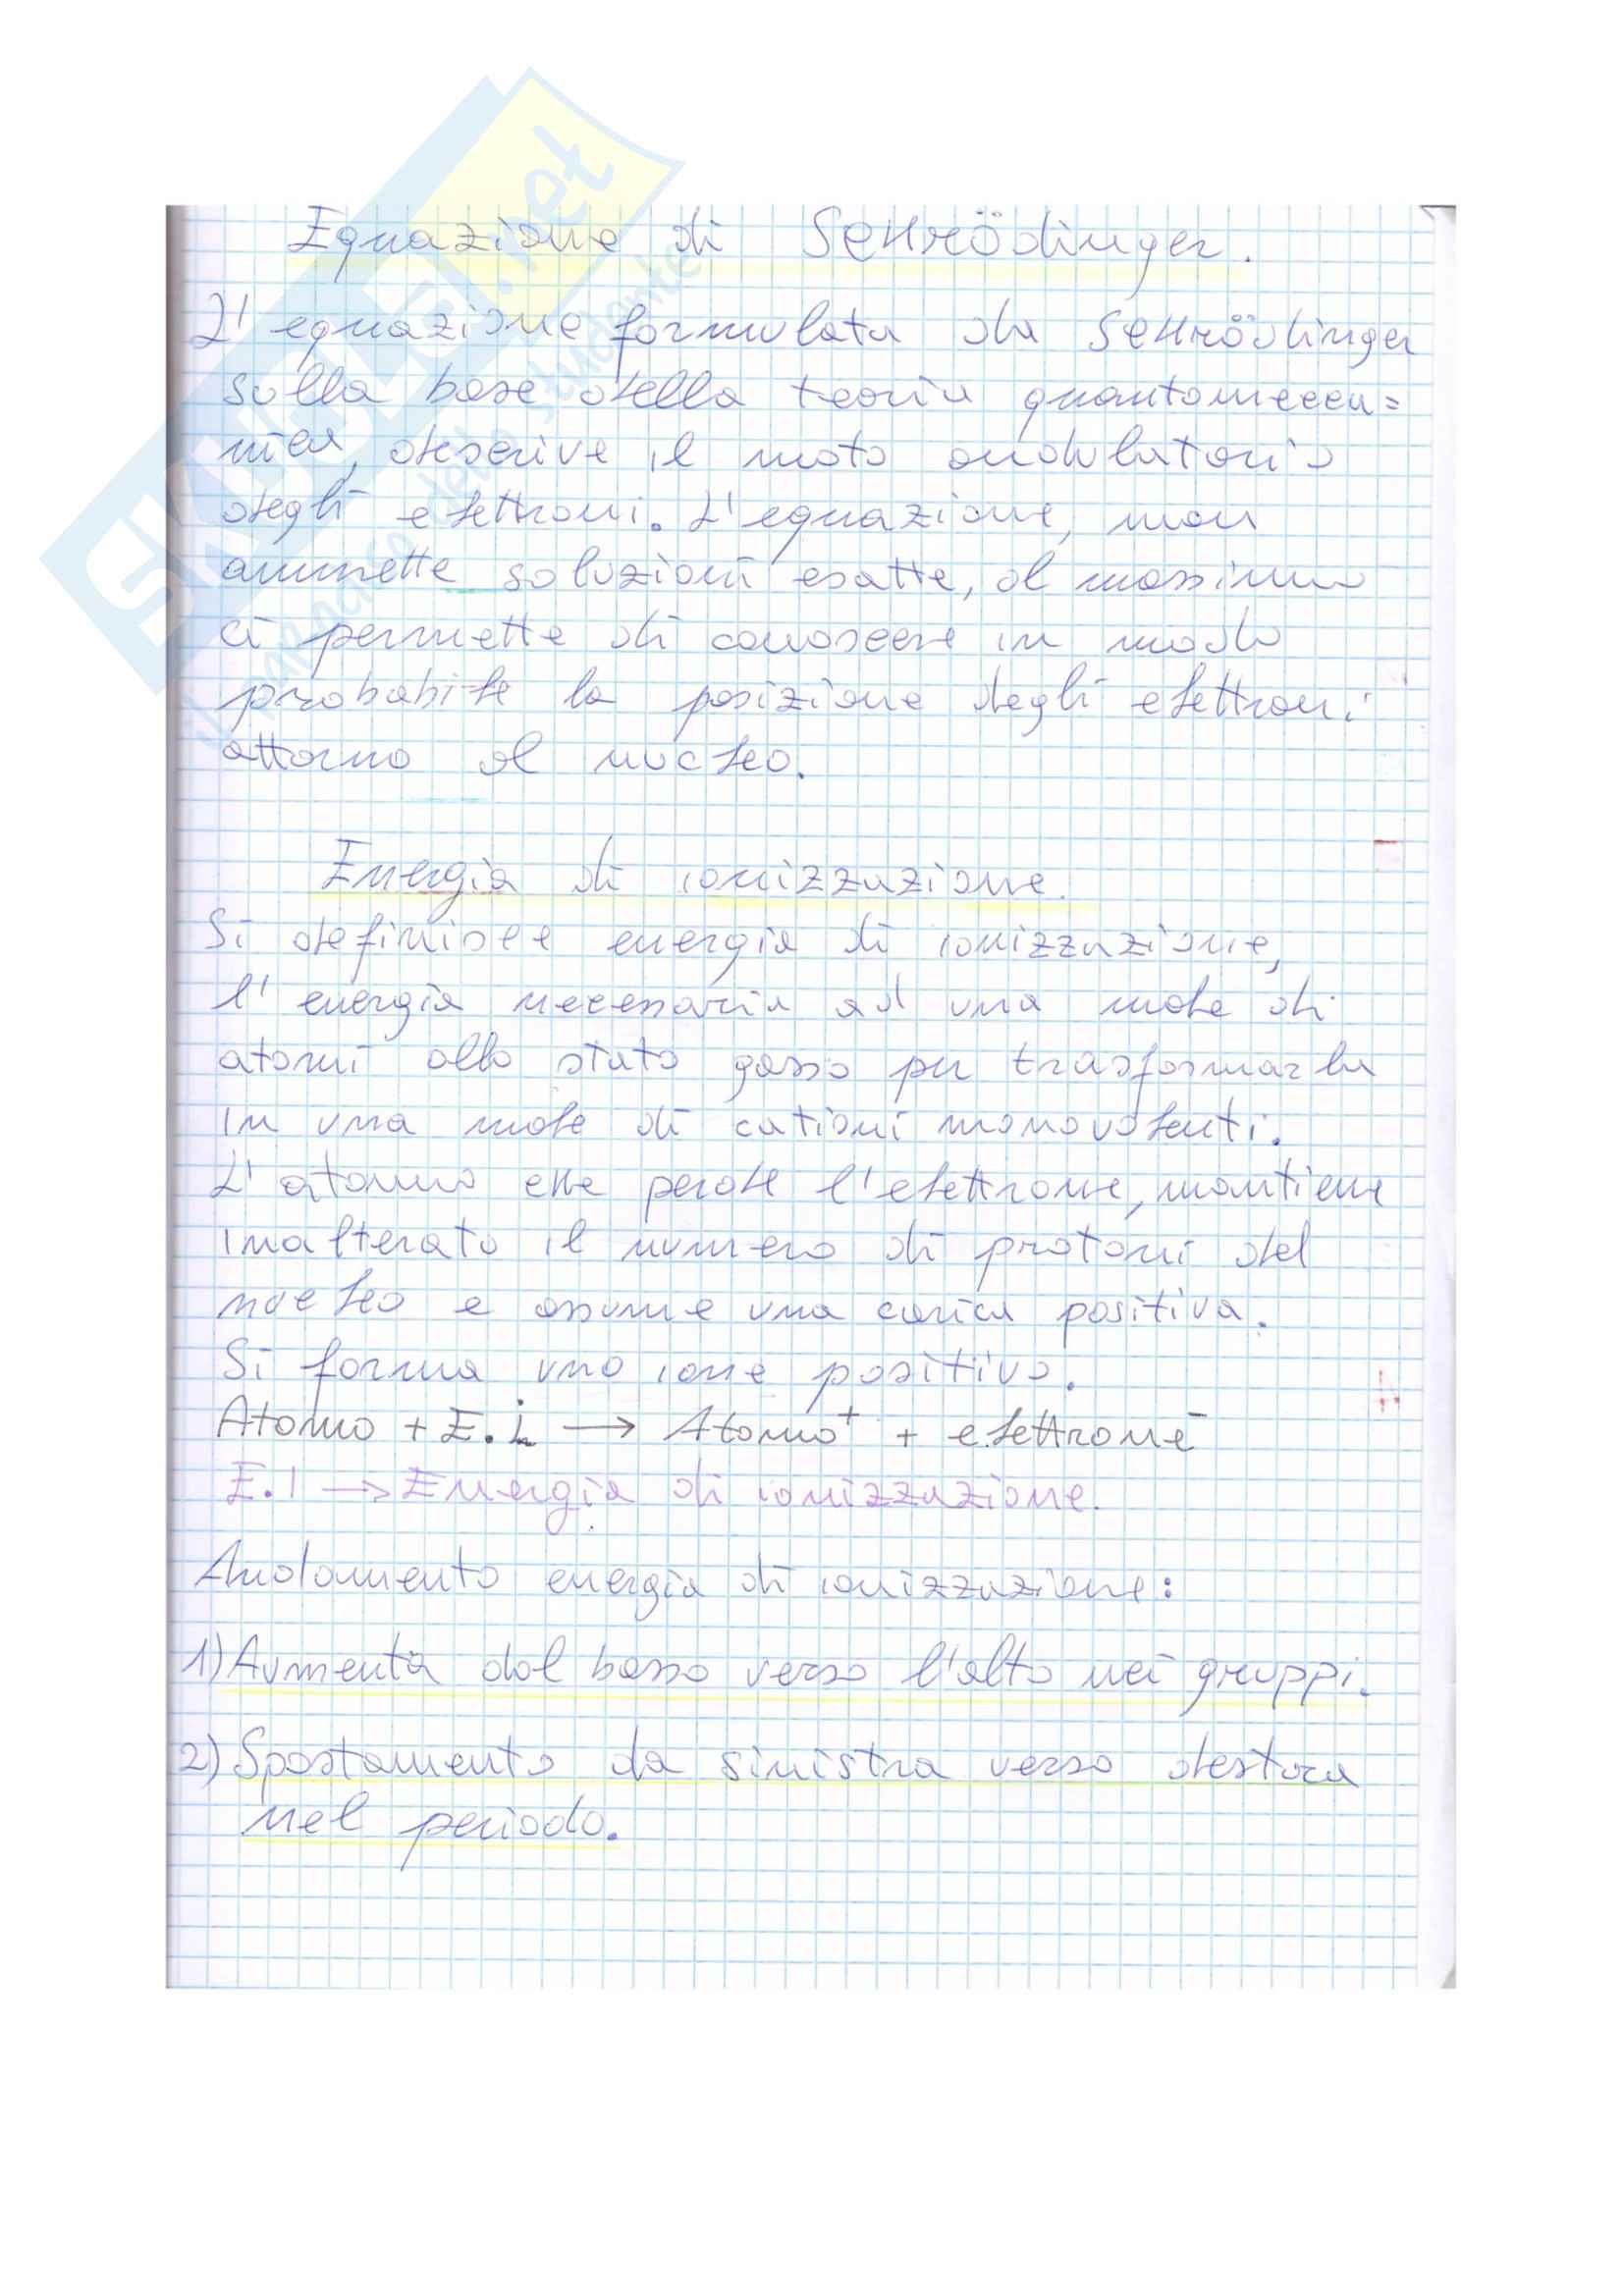 Equazione di Schrödinger.
L'equazione formulata da Schrödinger
sulla base della teoria quantomecca=
nica, descrive il moto ondulatorio
degli elettroni. L'equazione, non
ammette soluzioni esatte, al massimo
ci permette di conoscere in modo
probabile la posizione degli elettroni
attorno al nucleo.
Energia di ionizzazione.
Si definisce energia di ionizzazione,
l'energia necessaria ad una mole di
atomi allo stato gasso per trasformarla
in una mole di cationi monovalenti.
L'atomo che perde l'elettrone, mantiene
inalterato il numero di protoni del
nucleo e assume una carica positiva.
Si forma uno ione positivo.
Atomo + E.i → Atomo⁺ + elettrone⁻
E.I → Energia di ionizzazione.
Andamento energia di ionizzazione:
1) Aumenta dal basso verso l'alto nei gruppi.
2) Spostamento da sinistra verso destra
nel periodo.
SKUOLA.net
il paradiso dello studente